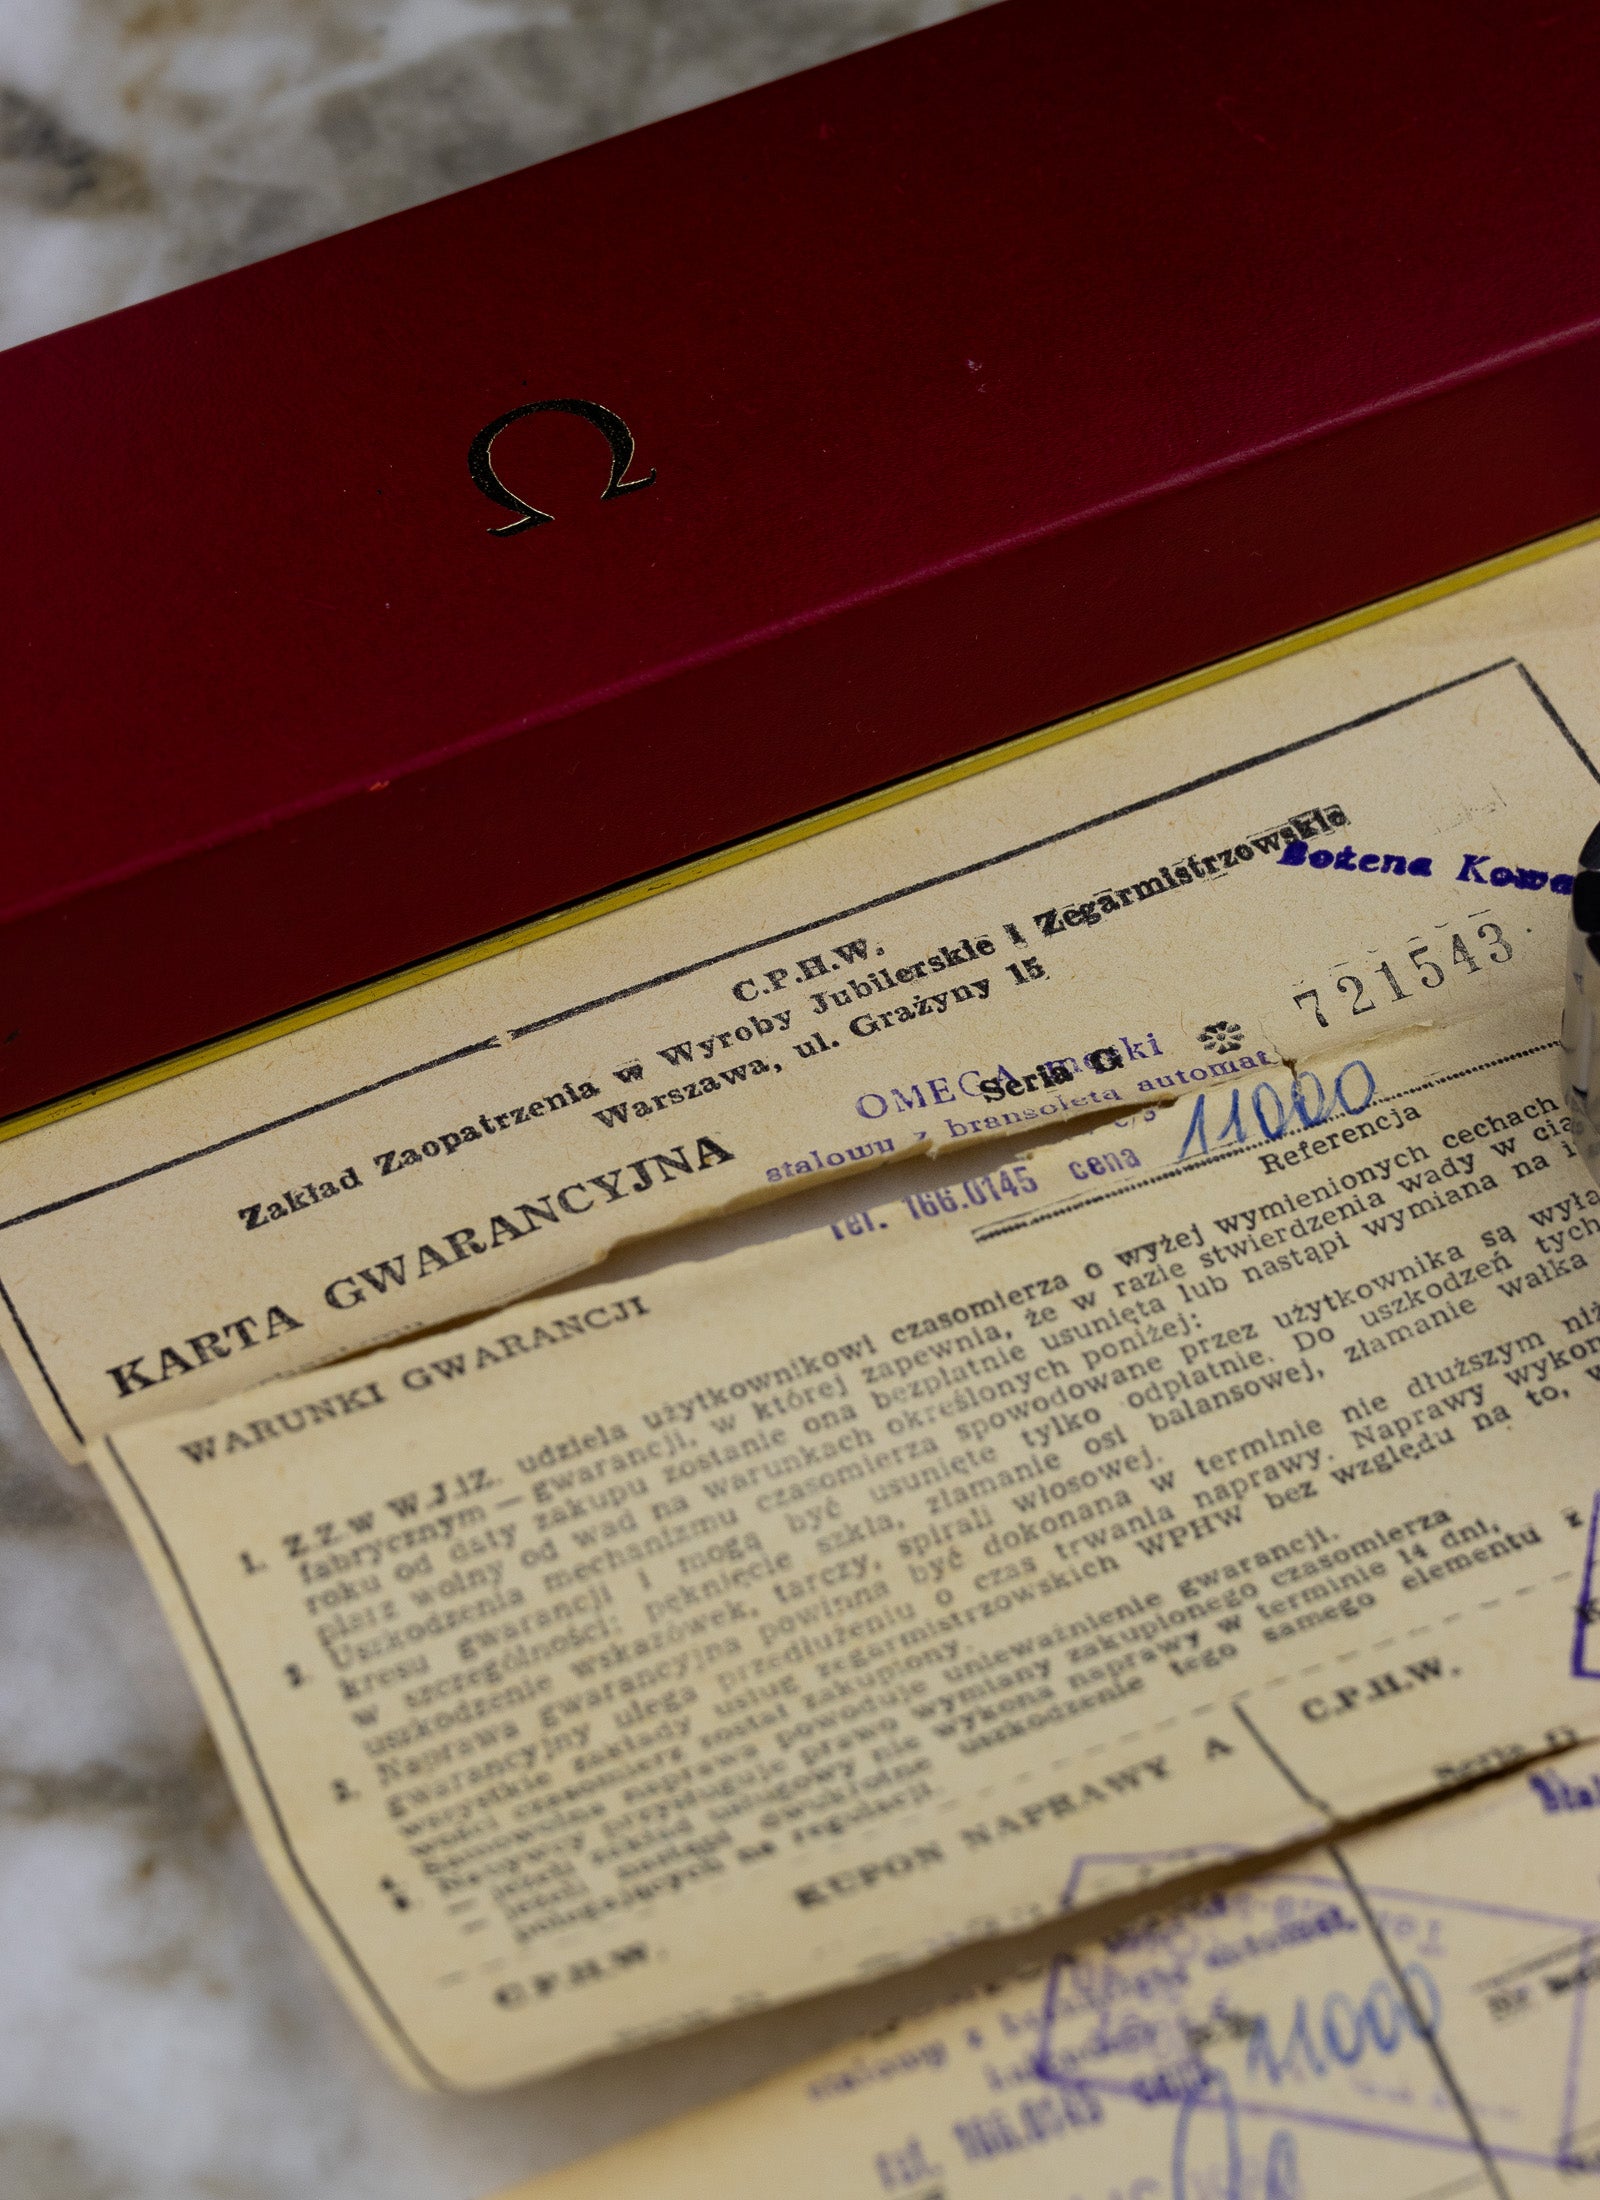 Ω
C.P.H.W.
Zakład Zaopatrzenia w Wyroby Jubilerskie i Zegarmistrzowskie
Bożena Kowa
Warszawa, ul. Grażyny 15
KARTA GWARANCYJNA
OMEGA męski
Seria G ✼ 721543
stalowu z bransoletą automat
ref. 166.0145 cena 11000
Referencja
WARUNKI GWARANCJI
1. Z.Z.W W.J.IZ. udziela użytkownikowi czasomierza o wyżej wymienionych cechach
fabrycznym — gwarancji, w której zapewnia, że w razie stwierdzenia wady w cią
roku od daty zakupu zostanie ona bezpłatnie usunięta lub nastąpi wymiana na i
wolny od wad na warunkach określonych poniżej:
2. Uszkodzenia mechanizmu czasomierza spowodowane przez użytkownika są wyłą
kresu gwarancji i mogą być usunięte tylko odpłatnie. Do uszkodzeń tych
w szczególności: pęknięcie szkła, złamanie osi balansowej, złamanie wałka
uszkodzenie wskazówek, tarczy, spirali włosowej.
3. Naprawa gwarancyjna powinna być dokonana w terminie nie dłuższym niż
gwarancyjny ulega przedłużeniu o czas trwania naprawy. Naprawy wykon
wszystkie zakłady usług zegarmistrzowskich WPHW bez względu na to, w
czasomierz został zakupiony.
4. Samowolna naprawa powoduje unieważnienie gwarancji.
5. Nabywcy przysługuje prawo wymiany zakupionego czasomierza
— jeżeli zakład usługowy nie wykona naprawy w terminie 14 dni,
— jeżeli nastąpi dwukrotne uszkodzenie tego samego elementu z
polegających na regulacji.
KUPON NAPRAWY A
C.P.H.W.
C.P.H.W.
automat.
11000
ref. 166.0145